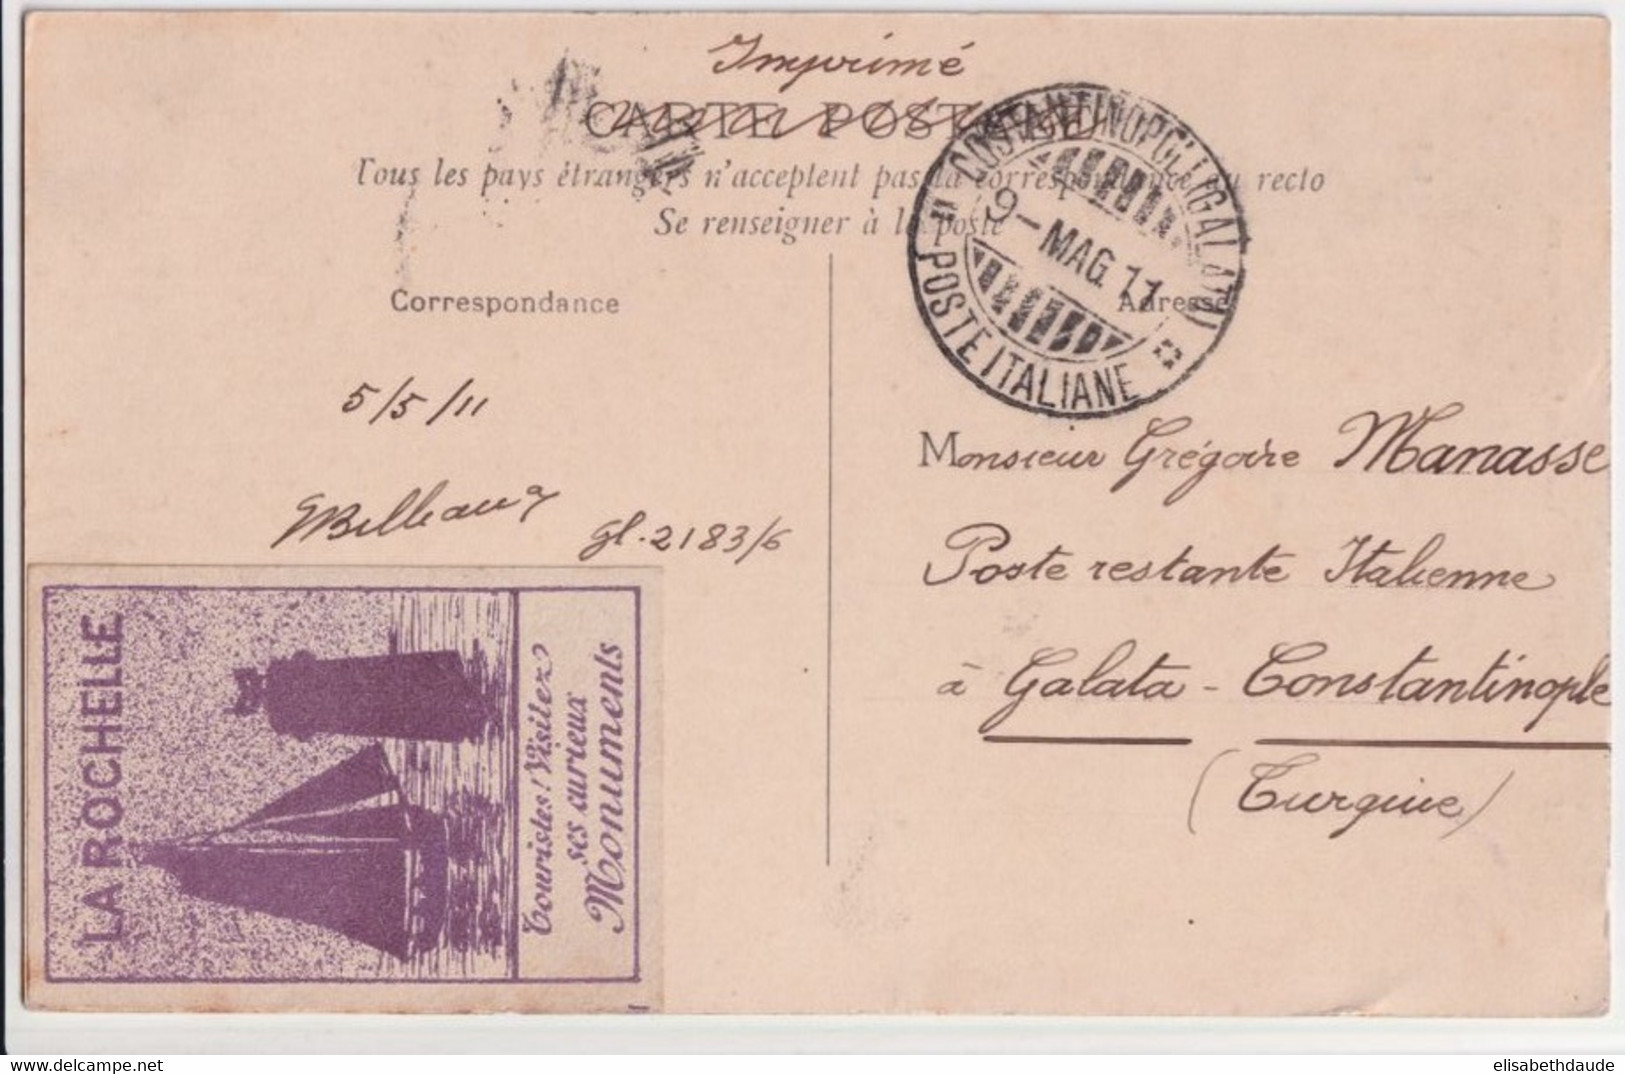 Imprimé
CARTE POSTALE
Tous les pays étrangers n'acceptent pas la correspondance au recto
Se renseigner à la poste
COSTANTINOPOLI (GALATA)
9 - MAG. 11
POSTE ITALIANE
Correspondance
Adresse
5/5/11
gl. 2183/6
Monsieur Grégoire Manasse
Poste restante Italienne
à Galata - Constantinople
(Turquie)
LA ROCHELLE
Touristes! Visitez
ses curieux
Monuments
elisabethdaude
www.delcampe.net